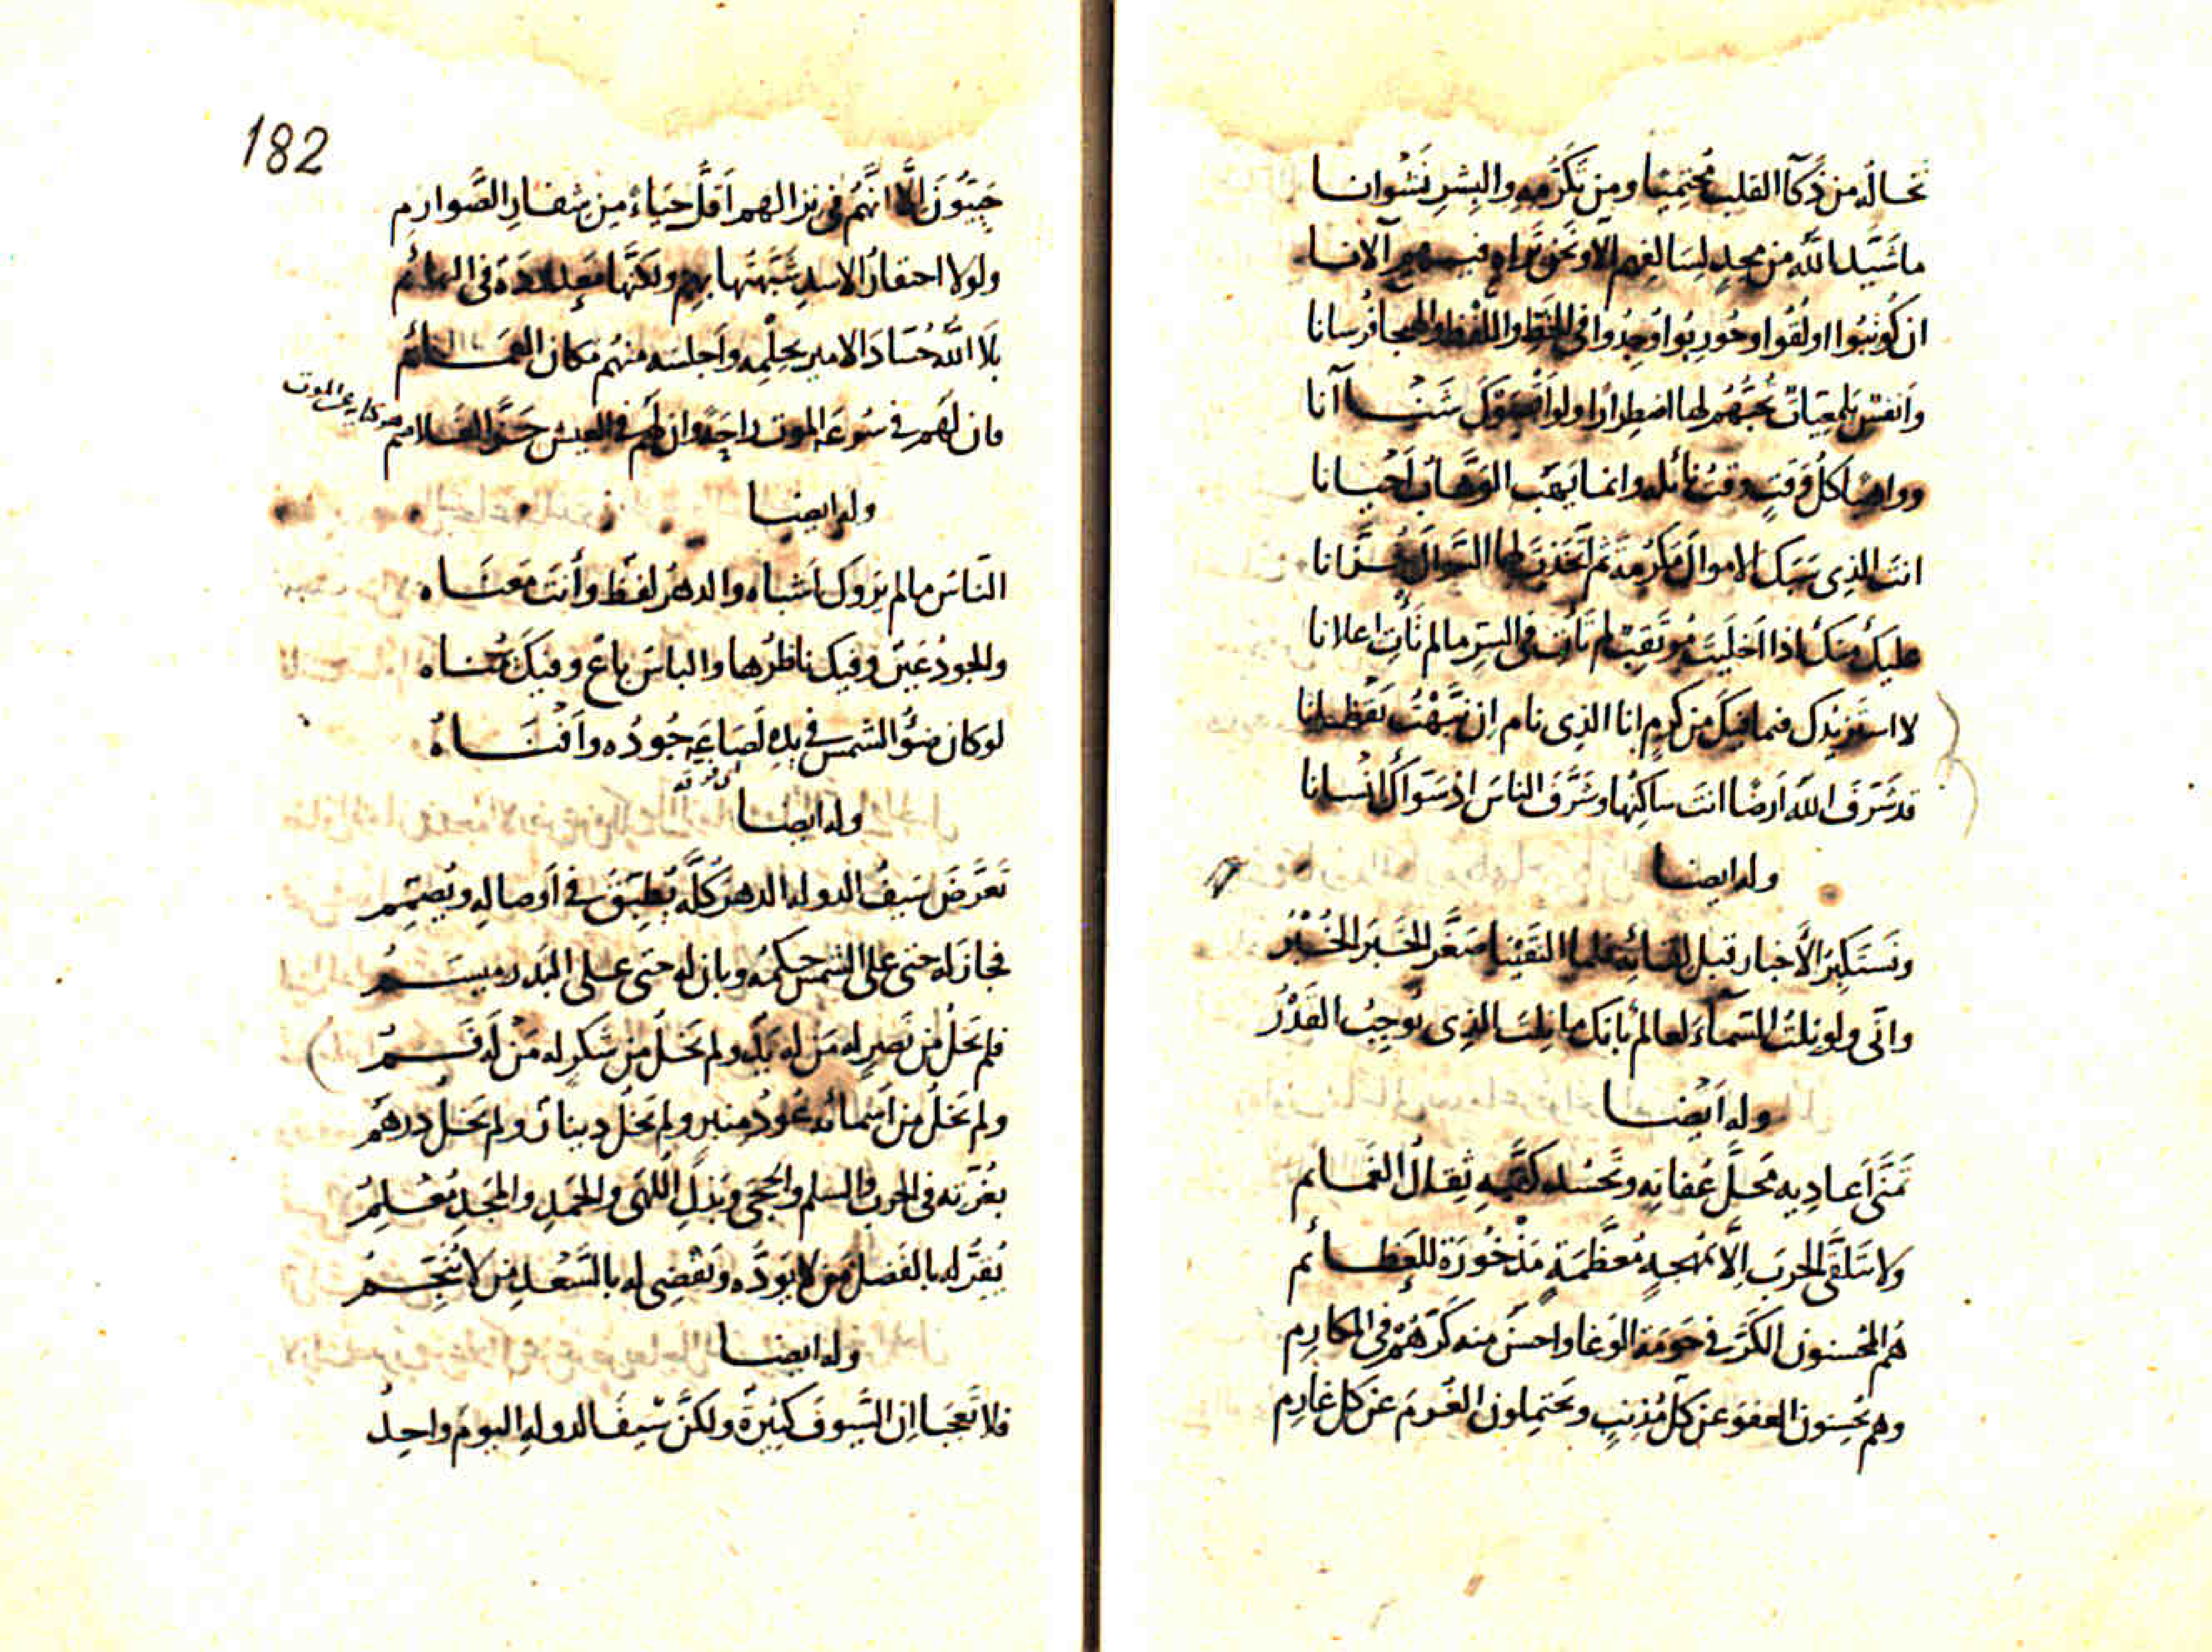 تخاله من ذكآ القلب محتميا ومن تكرمه والبشر نشوانا
ما شيد الله من مجد لسالفهم الا ونحن نراه فيهم آلانا
ان كوتبوا او لقوا او حوربوا وجدوا في الخط واللفظ والهيجا فرسانا
وانفس يلمعيات تحبهم لها اضطرارا ولو شنآنا
وواهبا كل وقت وقت نائله وانما يهب الوهاب احيانا
انت الذي سبك الاموال مكرمة ثم اتخذت لها السوال خزانا
عليك منك اذا اخليت مرتقب لم تأت في السر ما لم تأت اعلانا
لا استزيدك فيما فيك من كرم انا الذي نام ان نبهت يقظانا
قد شرف الله ارضا انت ساكنها وشرف الناس اذ سواك انسانا
وله ايضا
ونستكبر الأخبار قبل لقائه فلما التقينا صغر الخبر الخبر
واني ولو نلت السمآء لعالم بانك ما نلت الذي توجب القدر
وله أيضا
تمنى أعاديه محل عفاته وتحسد كفيه ثقال الغمائم
ولا تتلقى الحرب إلا بمهجة معظمة مذخورة للعظائم
هم المحسنون الكر في حومة الوغا واحسن منه كرهم في المكارم
وهم يحسنون العفو عن كل مذنب ويحتملون الغرم عن كل غارم
182
حييون الا انهم في نزالهم اقل حياء من شفار الصوارم
ولولا احتقار الاسد شبهتها بهم ولكنها معدودة في البهائم
بلا الله حساد الامير بحلمه واجلسه منهم مكان العمائم
فان لهم في سرعة الموت راحة وان لهم في العيش حز الغلاصم
كناية عن الموت
وله ايضا
الناس ما لم يروك اشباه والدهر لفظ وأنت معناه
والجود عين وفيك ناظرها والباس باع وفيك يمناه
لو كان ضؤ الشمس في يده لضاعه جوده وافناه
وله ايضا
تعرض سيف الدولة الدهر كله يطبق في أوصاله ويصمم
فجاز له حتى على الشمس حكمه وبان له حتى على البدر ميسم
فلم تخل من نصر له من له يد ولم تخل من شكر له من له فم
ولم تخل من أسمائه عود منبر ولم تخل دينار ولم تخل درهم
بغرته في الحرب والسلم والحجى وبذل اللهى والحمد والمجد معلم
يقر له بالفضل من لا يوده وتقضى له بالسعد من لا ينجم
وله ايضا
فلا تعجبا إن السيوف كثيرة ولكن سيف الدولة اليوم واحد